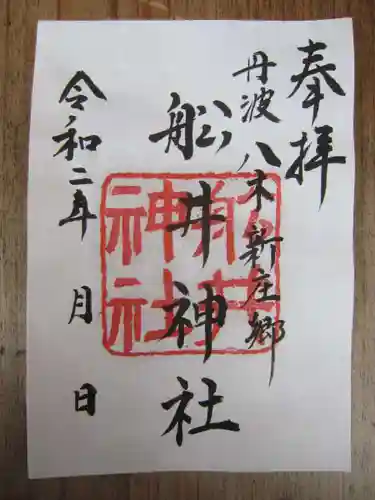 奉拝
丹波八木新庄郷
船井神社
船井
神社
令和二年 月 日